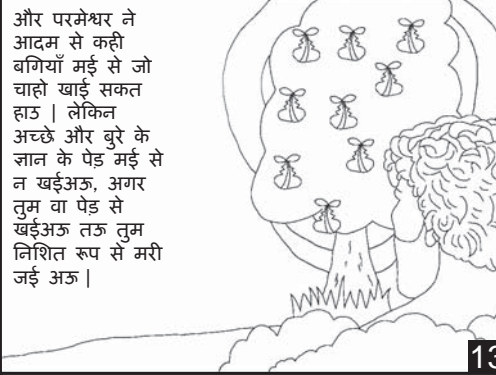 और परमेश्वर ने
आदम से कही
बगियाँ मई से जो
चाहो खाई सकत
हाउ | लेकिन
अच्छे और बुरे के
ज्ञान के पेड़ मई से
न खईअऊ, अगर
तुम वा पेड़ से
खईअऊ तऊ तुम
निशित रूप से मरी
जई अऊ |
13